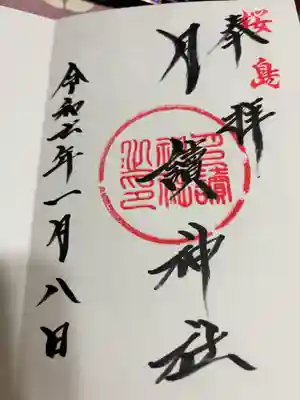 桜島
奉拝
月讀神社
令和六年一月八日